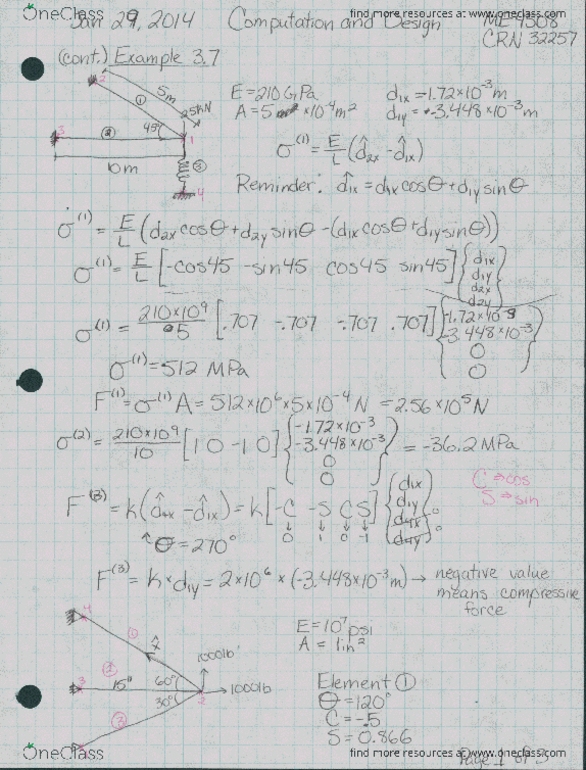 OneClass
find more resources at www.oneclass.com
Jan 29, 2014 Computation and Design
CRN 32257
(cont.) Example 3.7
2
5m
①
25kN
3
②
45°
1
10m
③
4
E=210GPa
A=5 ×10⁻⁴m²
d1x=1.72×10⁻³m
d1y=-3.448×10⁻³m
σ⁽¹⁾=E/L(d̂2x-d̂1x)
Reminder: d̂1x=d1xcosθ+d1ysinθ
σ⁽¹⁾=E/L(d2xcosθ+d2ysinθ-(d1xcosθ+d1ysinθ))
σ⁽¹⁾=E/L[-cos45 -sin45 cos45 sin45]{d1x d1y d2x d2y}
σ⁽¹⁾=210×10⁹/5[.707 -.707 -.707 .707]{-1.72×10⁻³ -3.448×10⁻³ 0 0}
σ⁽¹⁾=512 MPa
F⁽¹⁾=σ⁽¹⁾A=512×10⁶×5×10⁻⁴N=2.56×10⁵N
σ⁽²⁾=210×10⁹/10[1 0 -1 0]{-1.72×10⁻³ -3.448×10⁻³ 0 0}=-36.2MPa
C⇒cos
S⇒sin
F⁽³⁾=k(d̂4x-d̂1x)=k[-C -S C S]{d1x d1y d4x d4y}
0 1 0 -1
0
0
↑θ=270°
F⁽³⁾=k×d1y=2×10⁶×(-3.448×10⁻³m)→negative value
means compressive
force
4
①
x̂
1000lb
②
3
15"
60°
30°
2
1000lb
③
E=10⁷psi
A=1in²
Element ①
θ=120°
C=-.5
S=0.866
OneClass
find more resources at www.oneclass.com
Page 1 of 3